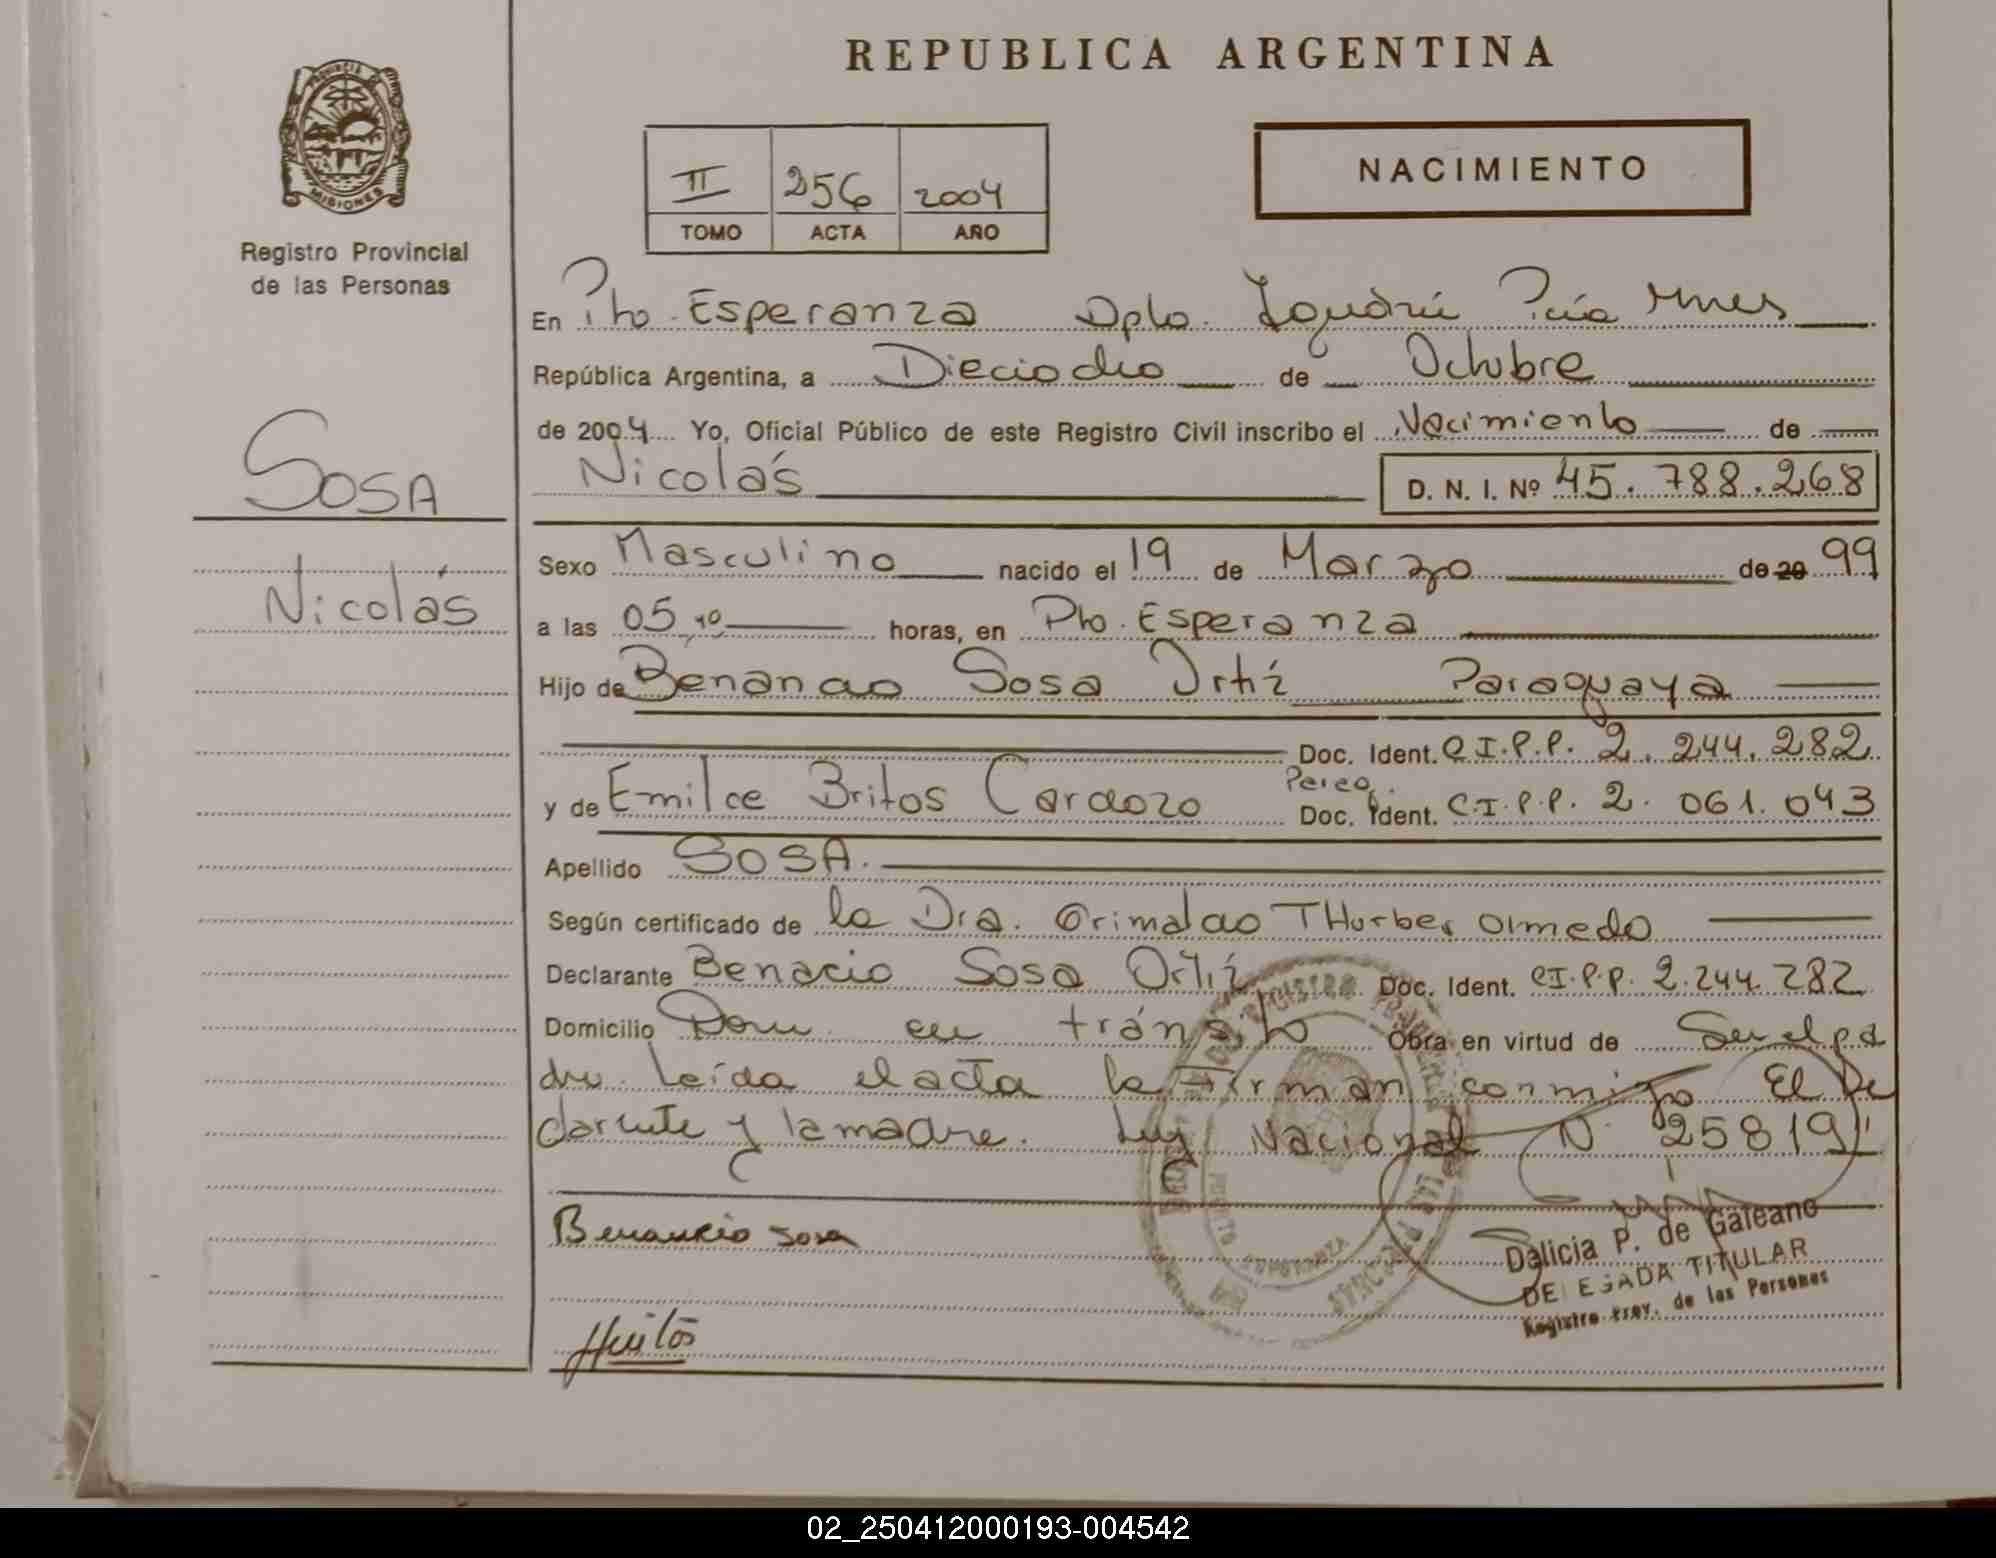 REPUBLICA ARGENTINA
PROVINCIA DE MISIONES
Registro Provincial
de las Personas
II 256 2004
TOMO ACTA AÑO
NACIMIENTO
En Pto. Esperanza Dpto. Iguazú Pcia Mnes
República Argentina, a Dieciocho de Octubre
de 2004 Yo, Oficial Público de este Registro Civil inscribo el Nacimiento de
SOSA
Nicolás D. N. I. Nº 45.788.268
Nicolás
Sexo Masculino nacido el 19 de Marzo de 20 99
a las 05,10 horas, en Pto. Esperanza
Hijo de Benancio Sosa Ortíz Paraguaya
Doc. Ident. C.I.P.P. 2.244.282
y de Emilce Britos Cardozo Doc. Ident. C.I.P.P. 2.061.043
Apellido SOSA.
Según certificado de la Dra. Grimalda Olmedo
Declarante Benacio Sosa Ortíz Doc. Ident. CI.P.P. 2.244.282
Domicilio Dom. en tránsito Obra en virtud de Ser el pa
dre. Leída el acta la firman conmigo El De
clarante y la madre. Ley Nacional Nº 25819
Benancio Sosa
Dalicia P. de Galeano
DELEGADA TITULAR
Registro Prov. de las Personas
02_250412000193-004542